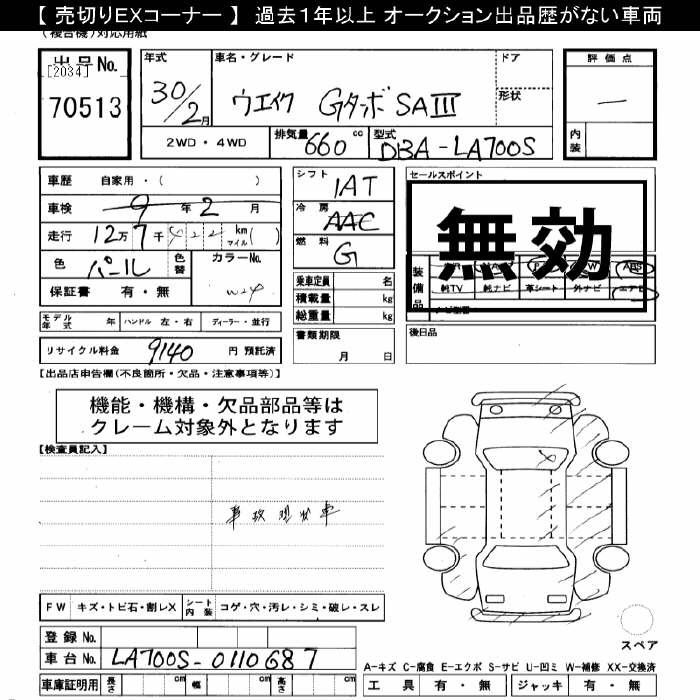 【 売切りEXコーナー 】 過去1年以上 オークション出品歴がない車両
(複合機)対応用紙
出品No.
[2034]
70513
年式
30/2月
車名・グレード
ウエイク Gターボ SAⅢ
ドア
形状
評価点
―
内装
2WD・4WD
排気量 660 cc
型式 DBA-LA700S
車歴 自家用・( )
車検 9年2月
走行 12万7千422 km マイル( )
色 パール
色替
カラーNo. W24
保証書 有・無
シフト IAT
冷房 AAC
燃料 G
乗車定員 名
積載量 kg
総重量 kg
セールスポイント
無効
装備品
ABS
純TV 純ナビ 革シート 外ナビ エアB
モデル年式 年 ハンドル 左・右 ディーラー・並行
書類期限
月 日
後日品
リサイクル料金 9140 円 預託済
【出品店申告欄(不良箇所・欠品・注意事項等)】
機能・機構・欠品部品等は
クレーム対象外となります
【検査員記入】
事故現状車
FW キズ・トビ石・割レX シート内装 コゲ・穴・汚レ・シミ・破レ・スレ
登録No.
車台No. LA700S-0110687
車庫証明用 長さ cm 幅 cm 高さ cm
スペア
A-キズ C-腐食 E-エクボ S-サビ U-凹ミ W-補修 XX-交換済
工具 有・無 ジャッキ 有・無